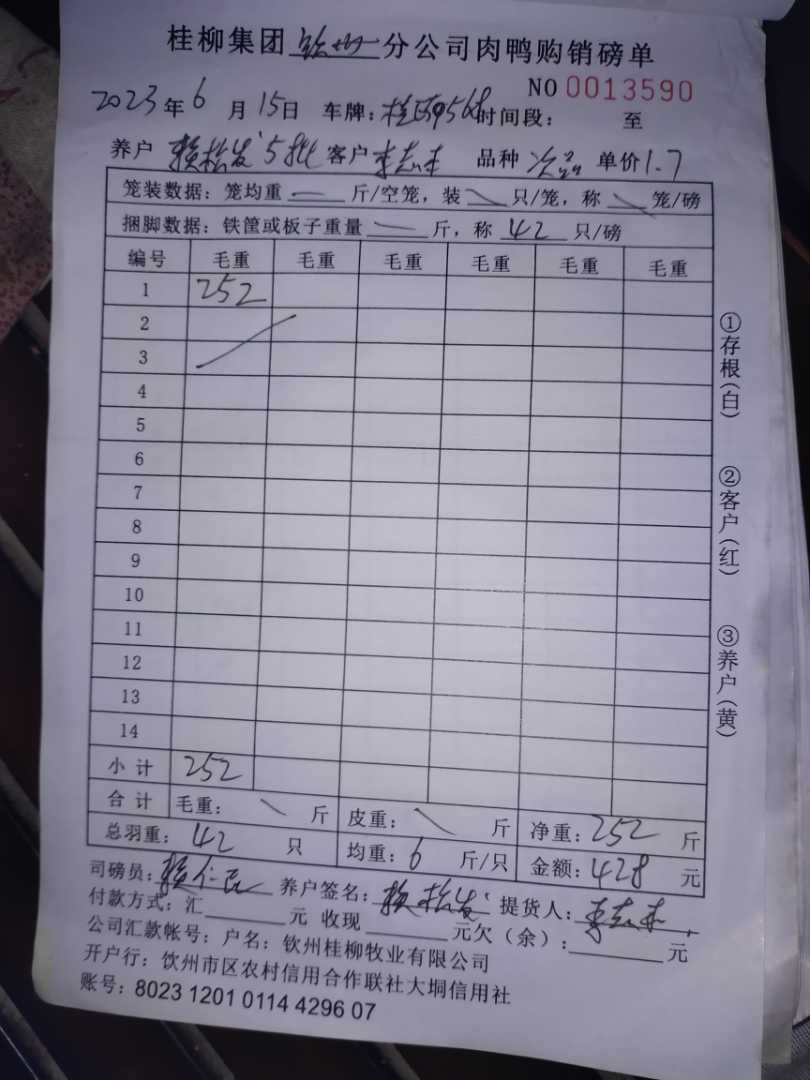 桂柳集团 钦州 分公司肉鸭购销磅单
NO 0013590
2023年6月15日 车牌: 时间段: 至
养户 赖松发 5批 客户 品种 次品 单价 1.7
笼装数据: 笼均重 — 斤/空笼, 装 \ 只/笼, 称 \ 笼/磅
捆脚数据: 铁筐或板子重量 — 斤, 称 42 只/磅
编号 毛重 毛重 毛重 毛重 毛重 毛重
1 252
2
3
4
5
6
7
8
9
10
11
12
13
14
小计 252
合计 毛重: \ 斤 皮重: \ 斤 净重: 252 斤
总羽重: 42 只 均重: 6 斤/只 金额: 428 元
司磅员: 赖仁民 养户签名: 赖松发 提货人:
付款方式: 汇 元 收现 元欠(余): 元
公司汇款帐号: 户名: 钦州桂柳牧业有限公司
开户行: 钦州市区农村信用合作联社大垌信用社
账号: 8023 1201 0114 4296 07
①存根(白)
②客户(红)
③养户(黄)